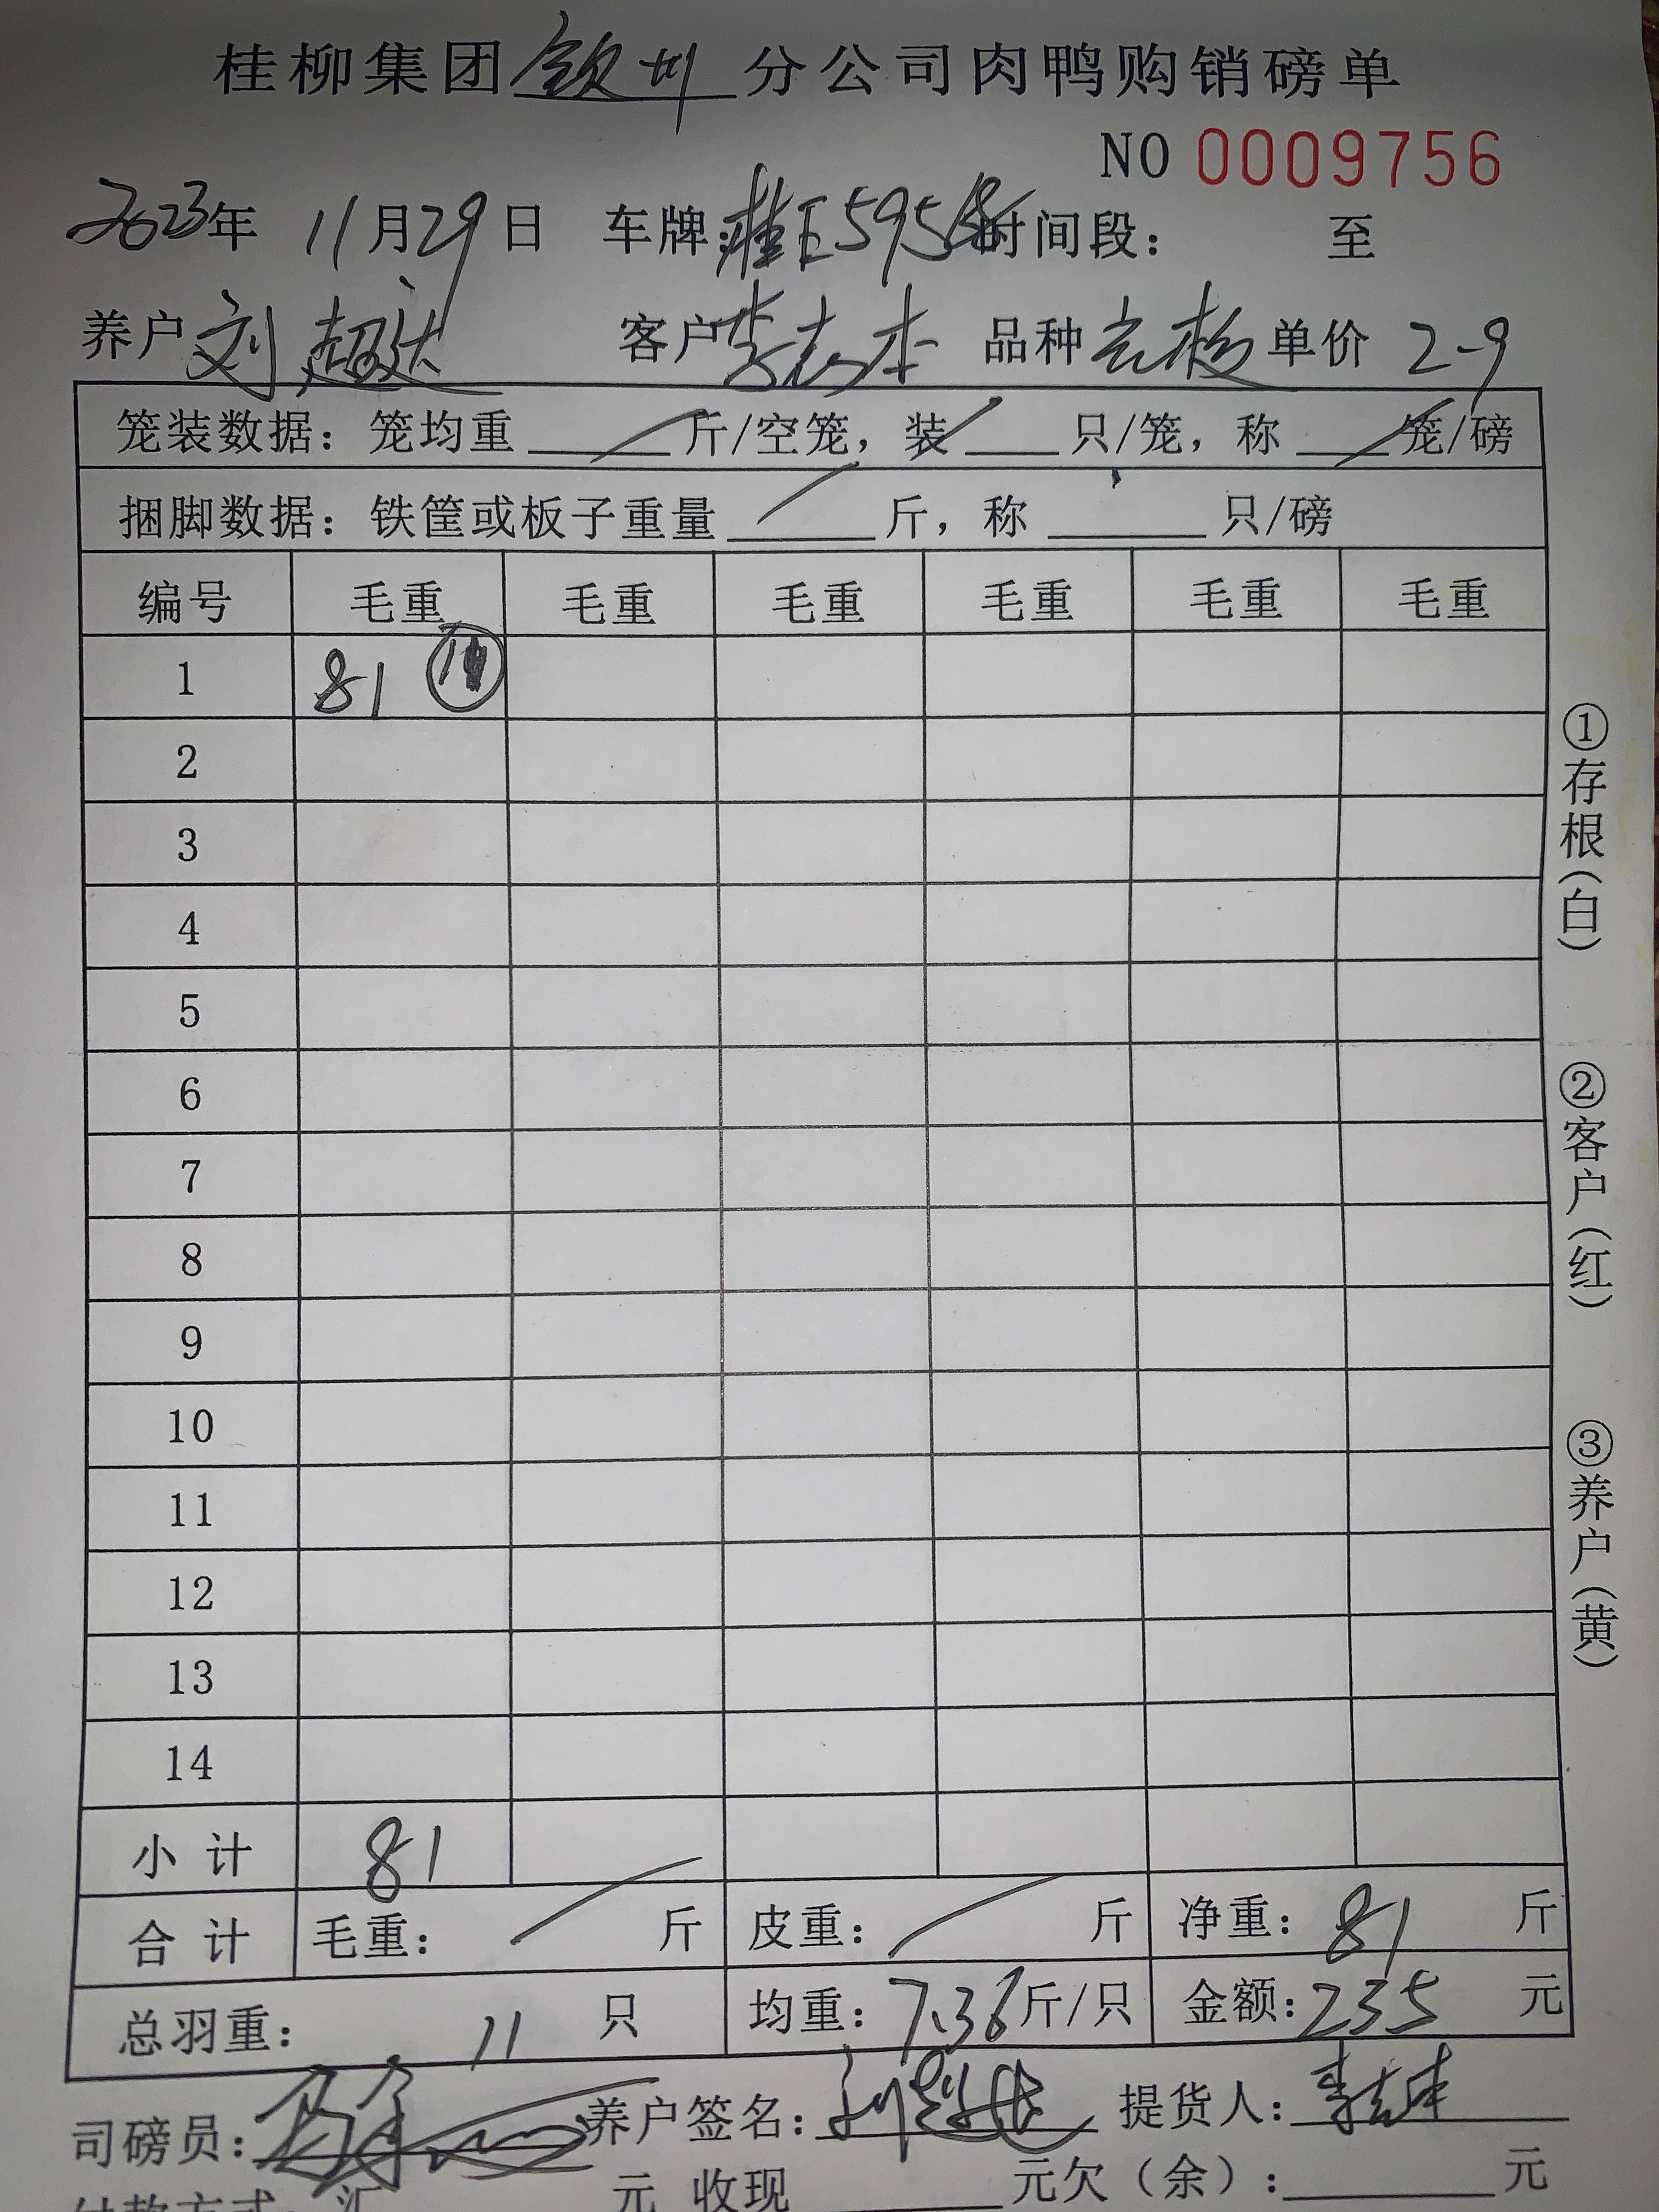 桂柳集团钦州分公司肉鸭购销磅单
NO 0009756
2023年 11月29日 车牌:桂E595 时间段: 至
养户 刘超达 客户 李志本 品种 单价 2-9
笼装数据: 笼均重 斤/空笼, 装 只/笼, 称 笼/磅
捆脚数据: 铁筐或板子重量 斤, 称 只/磅
编号 毛重 毛重 毛重 毛重 毛重 毛重
1 81
2
3
4
5
6
7
8
9
10
11
12
13
14
小计 81
合计 毛重: 斤 皮重: 斤 净重: 81 斤
总羽重: 11 只 均重: 7.36斤/只 金额:235 元
司磅员: 养户签名:刘超达 提货人:李志本
付款方式: 汇 元 收现 元欠(余): 元
①存根(白)
②客户(红)
③养户(黄)